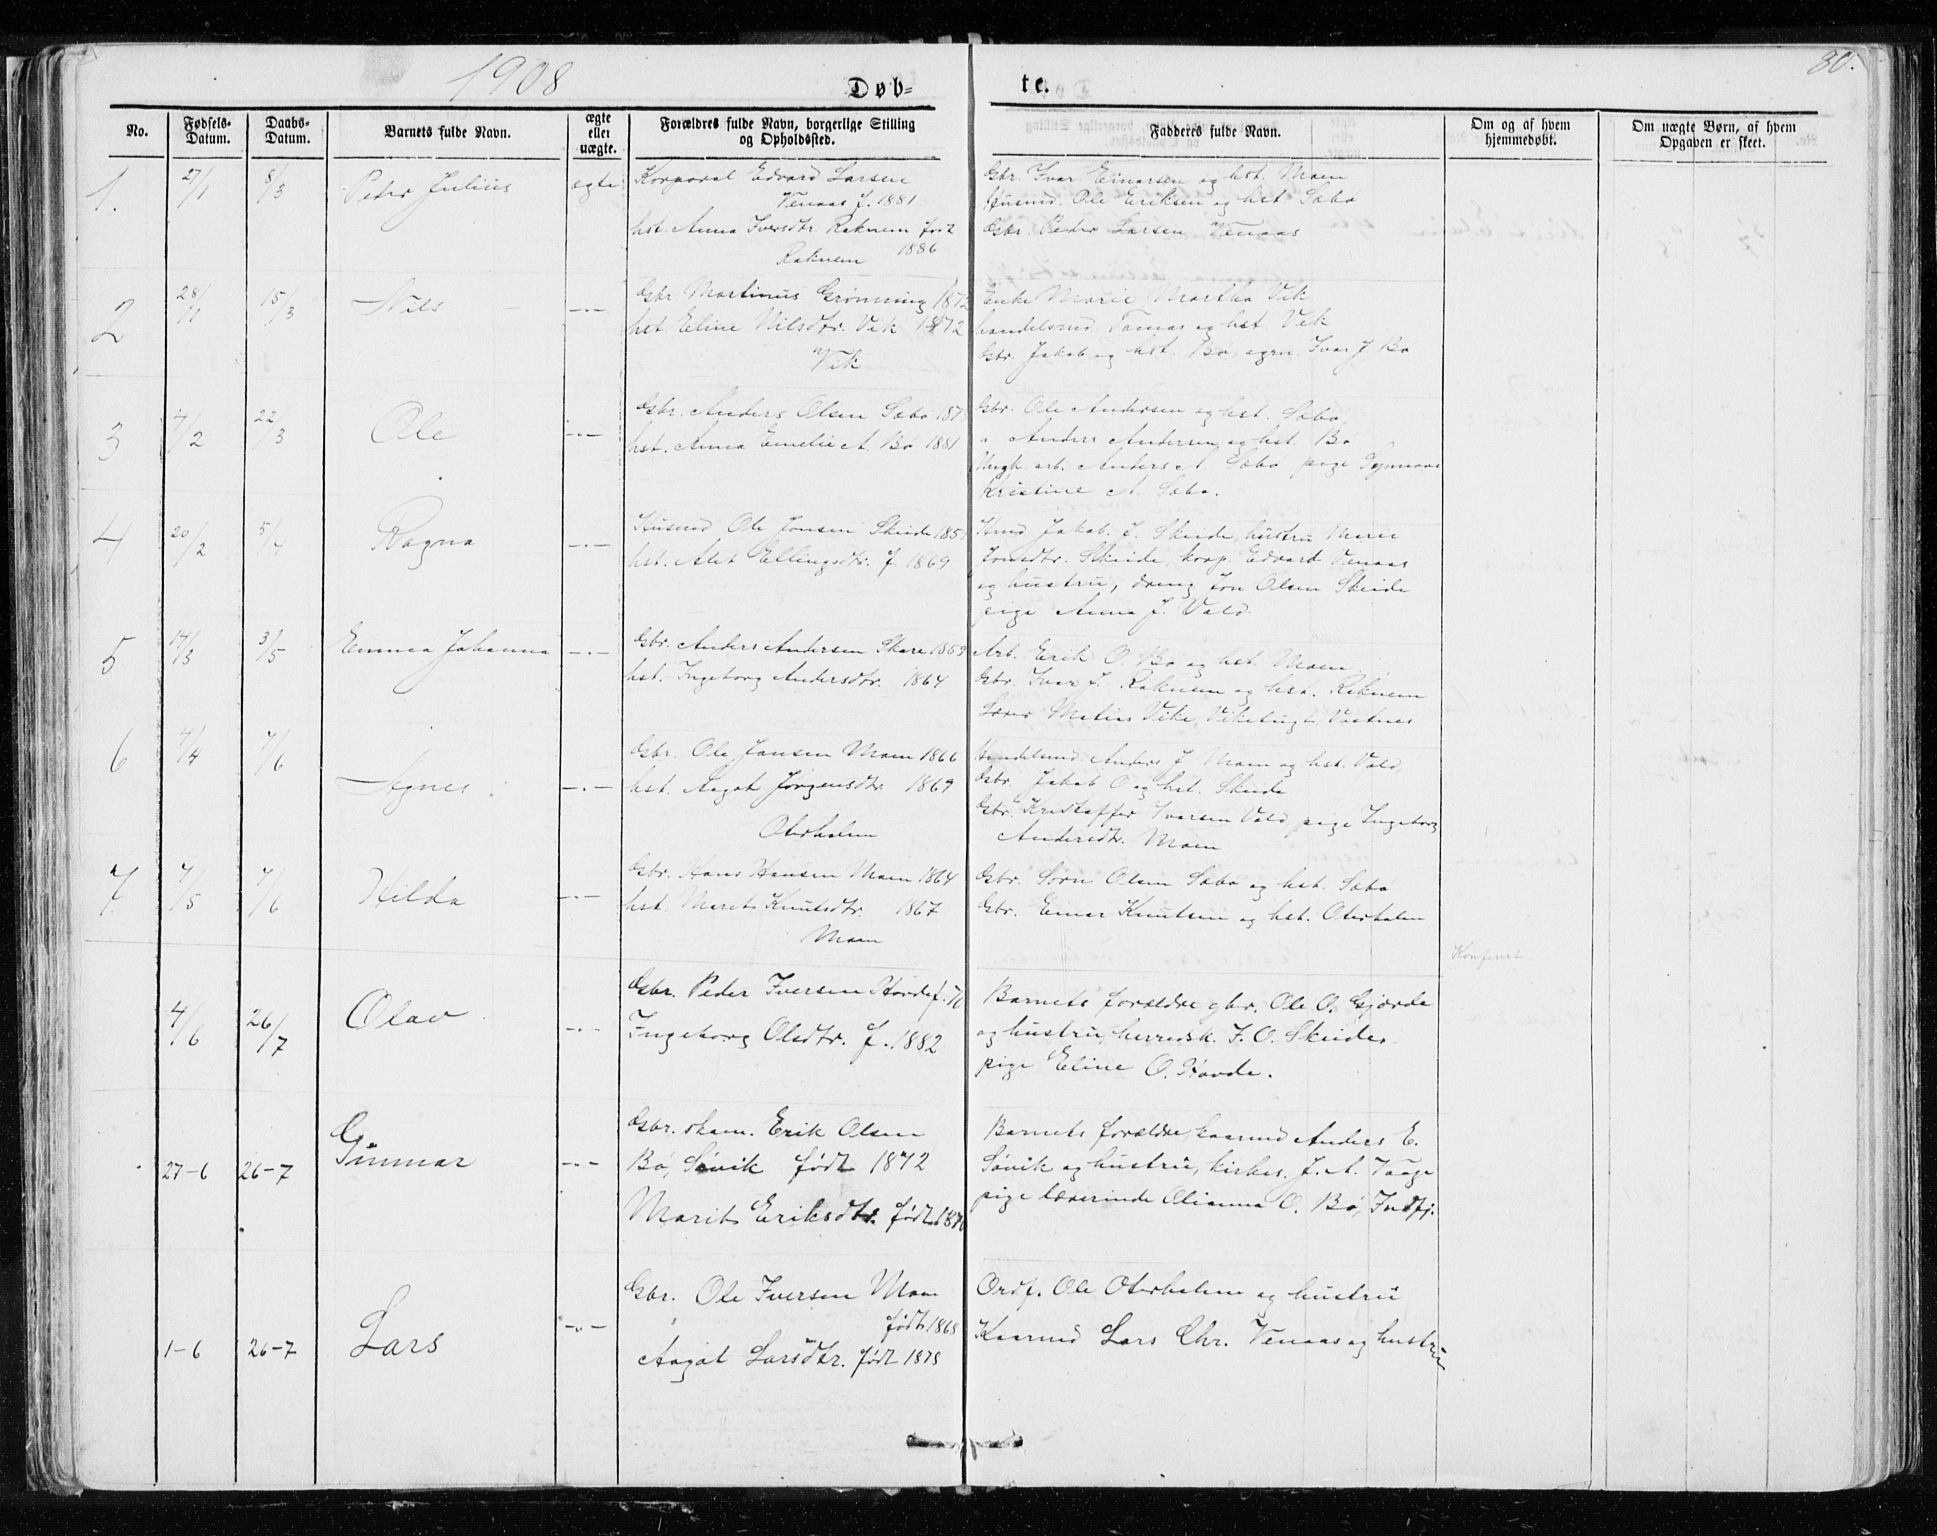 1908
Døb-
te.
80.
No.
Fødsels-Datum.
Daabs-Datum.
Barnets fulde Navn.
ægte eller uægte.
Forældres fulde Navn, borgerlige Stilling og Opholdssted.
Fadderes fulde Navn.
Om og af hvem hjemmedøbt.
Om uægte Børn, af hvem Opgaven er skeet.
1. 27/1 8/3 Peder Julius ægte
Korporal Edvard Larsen
Venaas f. 1881
hst. Anna Iversdtr. Raknem født
1886
Raknem
Gbr. Ivar Einarsen og hst. Moen
Husmd. Ole Eriksen og hst. Sæbø
Gbr. Peder Larsen Venaas
2 28/1 15/3 Nils -„-
Gbr Martinus Grønning 1872
hst Eline Nilsdtr. Vik 1872
Vik
Enke Marie Martha Vik
handelsmd. Tomas og hst. Vik
Gbr. Jakob og hst. Bø, Ivar J. Bø
3 4/2 22/3 Ole -„-
Gbr. Anders Olsen Sæbø
hst. Anna Emelie A. Bø 1881
Gbr. Ole Andersen og hst. Sæbø,
„ Anders Andersen og hst. Bø
Ungk. arb. Anders A. Sæbø pige
Kristine A. Sæbø.
4 20/2 5/4 Ragna -„-
Husmd Ole Jonsen Skeide
hst. Alet Ellingsdtr. f 1869
Hmd Jakob J. Skeide, hustru Marie
Jonsdtr. Skeide, korp. Edvard Venaas
og hustru, dreng Jon Olsen Skeide
pige Anna J. Vold.
5 14/3 3/5 Emma Johanna -„-
Gbr. Anders Andersen Skare 1869
hst. Ingeborg Andersdtr. 1864
Arb. Erik O. Bø og hst. Moen.
Gbr. Ivar J. Raknem og hst. Raknem
Vestnes
6 4/4 7/6 Agnes. -„-
Gbr. Ole Jansen Moen 1866
hst. Aagot Jørgensdtr. 1869
Oterholm
Handelsmd. Anders J Moen og hst. Vold,
Gbr. Jakob O og hst. Skeide
Gbr. Kristoffer Ivarsen Vold pige Ingeborg
Andersdtr. Moen
7. 7/5 7/6 Hilda -„-
Gbr. Hans Hansen Moen 1864
hst. Marit Knutsdtr. 1867
Moen
Gbr. Sørn Olsen Sæbø og hst. Sæbø
Gbr. Einar Knutsen og hst. Oterholm
4/6 26/7 Olav -„-
Gbr. Peder Iversen Hovde f. 70
Ingeborg Olsdtr. f. 1882
Barnets forældre gbr. Ole O. Gjærde
og hustru, herredsk. J. O. Skeide.
pige Eline O. Hovde.
27-6 26-7 Gunnar -„-
Gbr. skom. Erik Olsen
Bø, Søvik født 1872
Marit Eriksdtr. født
Barnets forældre, kaarmd Anders E.
Søvik og hustru, kirkes. J. A. Vaage
pige lærerinde Olianna O. Bø, Indfj.
1-6 26-7 Lars -„-
Gbr. Ole Iversen Moen
født 1868
Aagot Larsdtr. født 1878
Ordf. Ole Oterholm og hustru
Kaarmd Lars Chr. Venaas og hustru